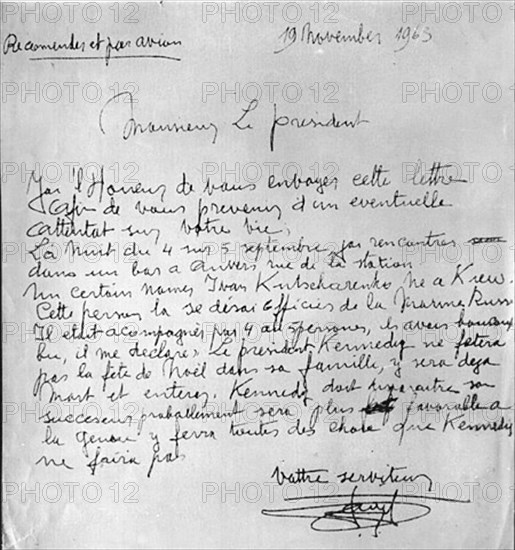 19 November 1963
Recomendes et par avion
Monsieur Le président
Jai l'Honeur de vous envoyer cette lettre
afin de vous prevenir d'un eventuelle
attentat sur votre vie,
La nuit du 4 sur 5 septembre jai rencontres
dans un bar a Anvers rue de la station
un certain nomes Ivan Kutscharenko né a Kiew.
Cette person la se désai Officies de la Marine Russ
Il etait acompagnés par 4 au 5 persones, ils avais
bu, il me declare: Le president Kennedy ne fetera
pas la fête de Noël dans sa famille, y sera deja
mort et enteres. Kennedy doit disparaitre son
succeseur proballement sera plus favorable a
la y ferra toutes des chose que Kennedy
ne faira pas
vottre serviteur
PHOTO 12